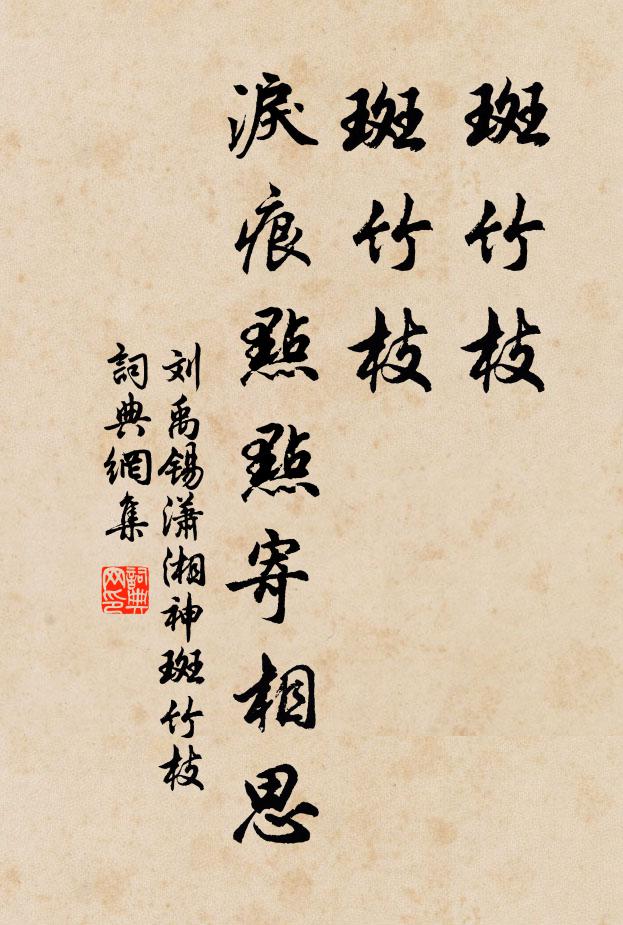 斑竹枝
斑竹枝
淚痕點點寄相思
刘禹錫瀟湘神斑竹枝
詞典網集
詞典
网印